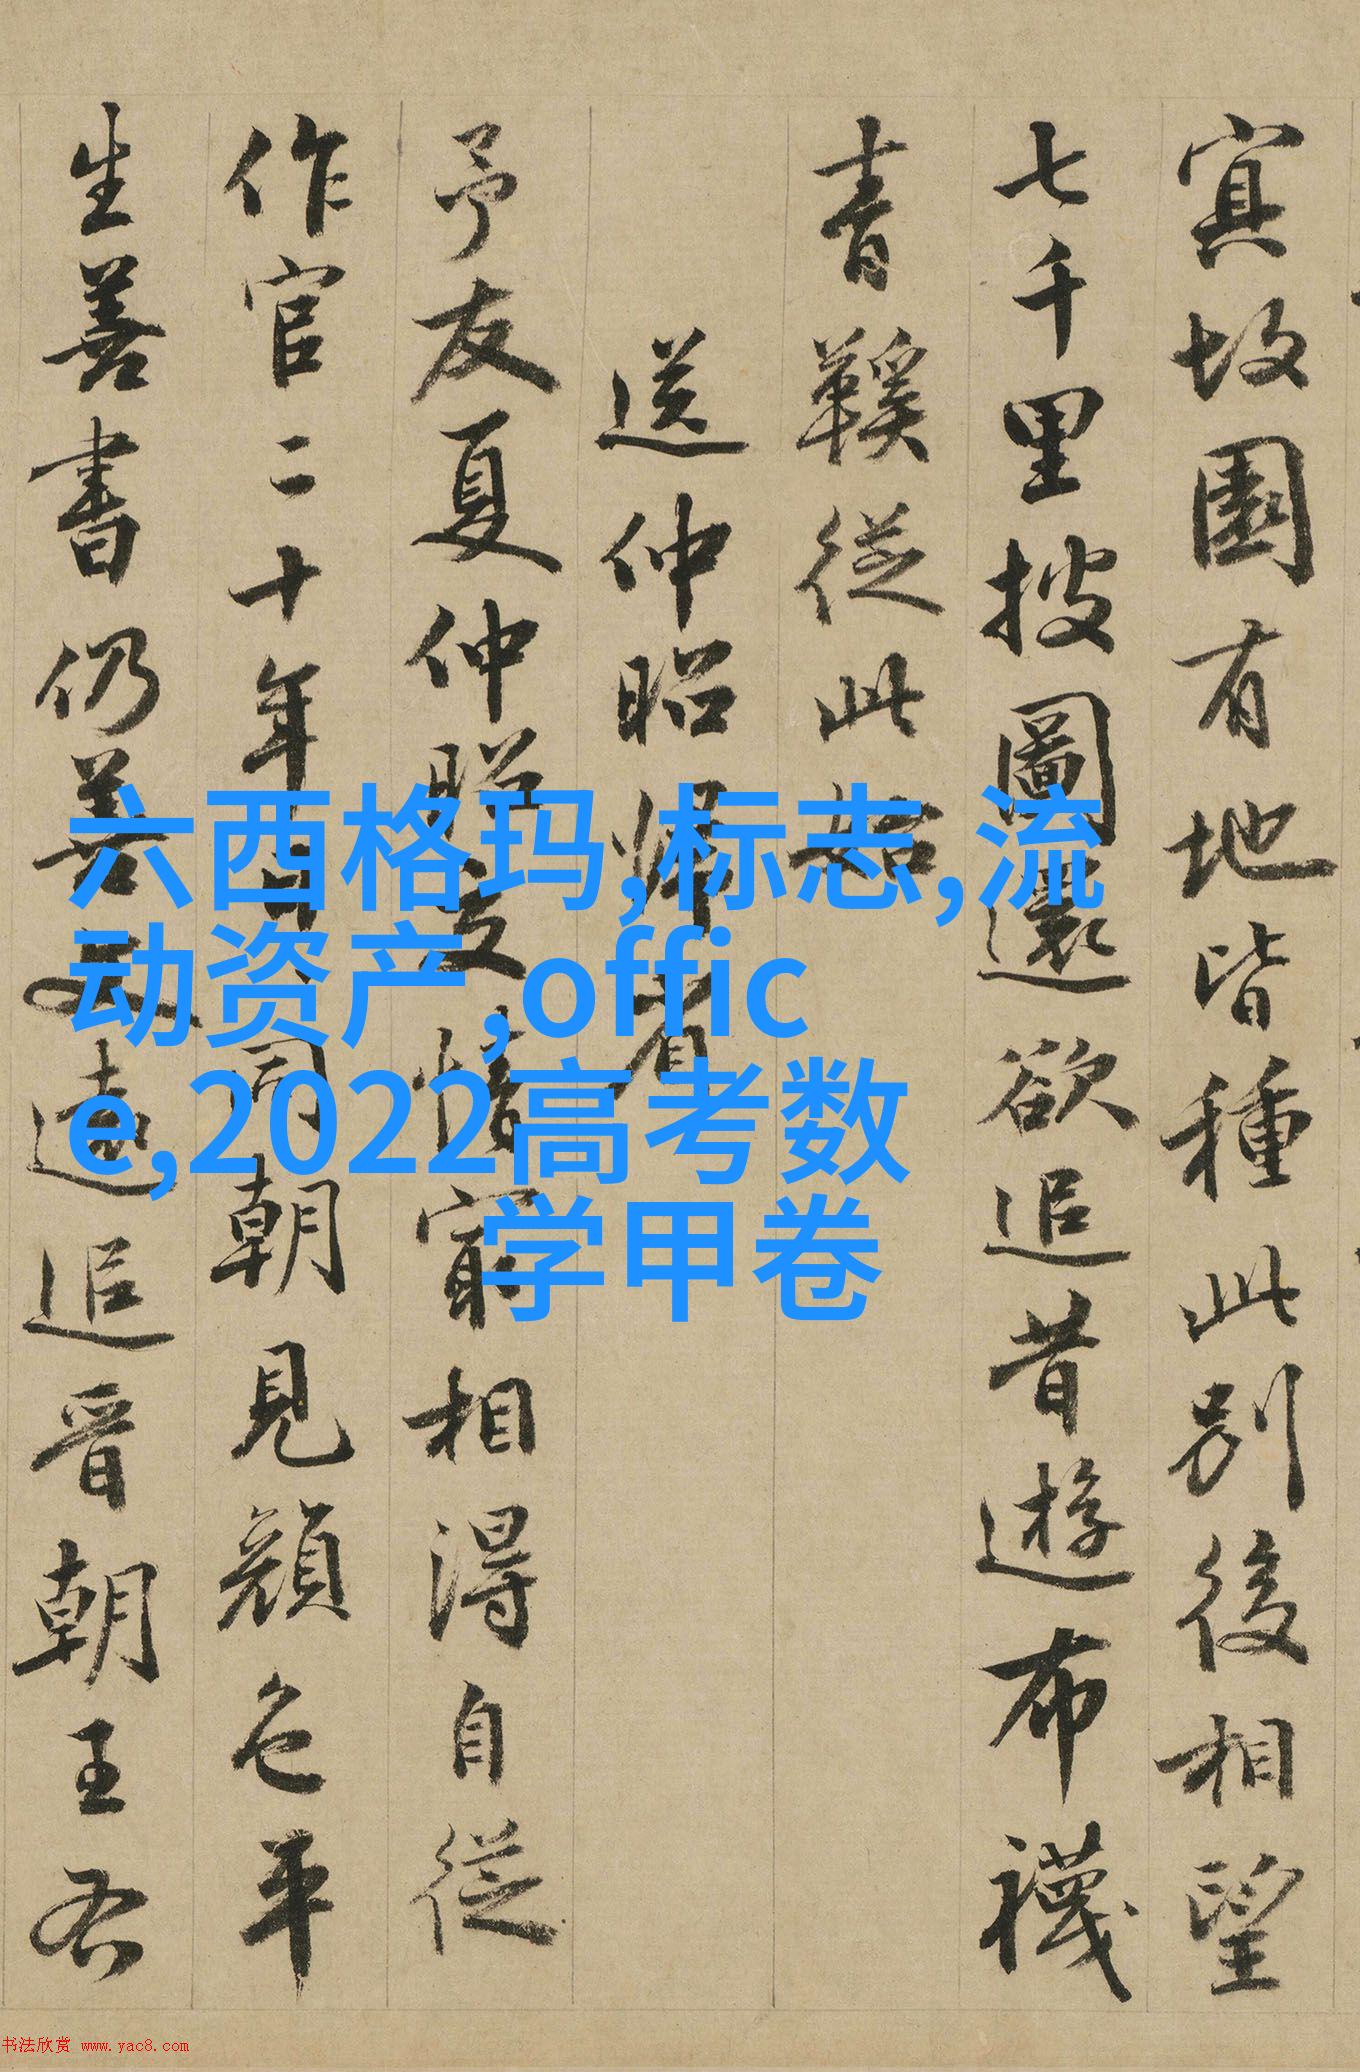 寘故園有地皆種此別後相望
七千里披圖還欲追昔遊布襪
青鞵從此始
送仲昭歸省
予友夏仲昭交情窮相得自從
作官二十年同朝見顔色平
生善書仍善追晉朝王吾
六西格玛,标志,流
动资产,offic
e,2022高考数
学甲卷
书法欣赏 www.yac8.com